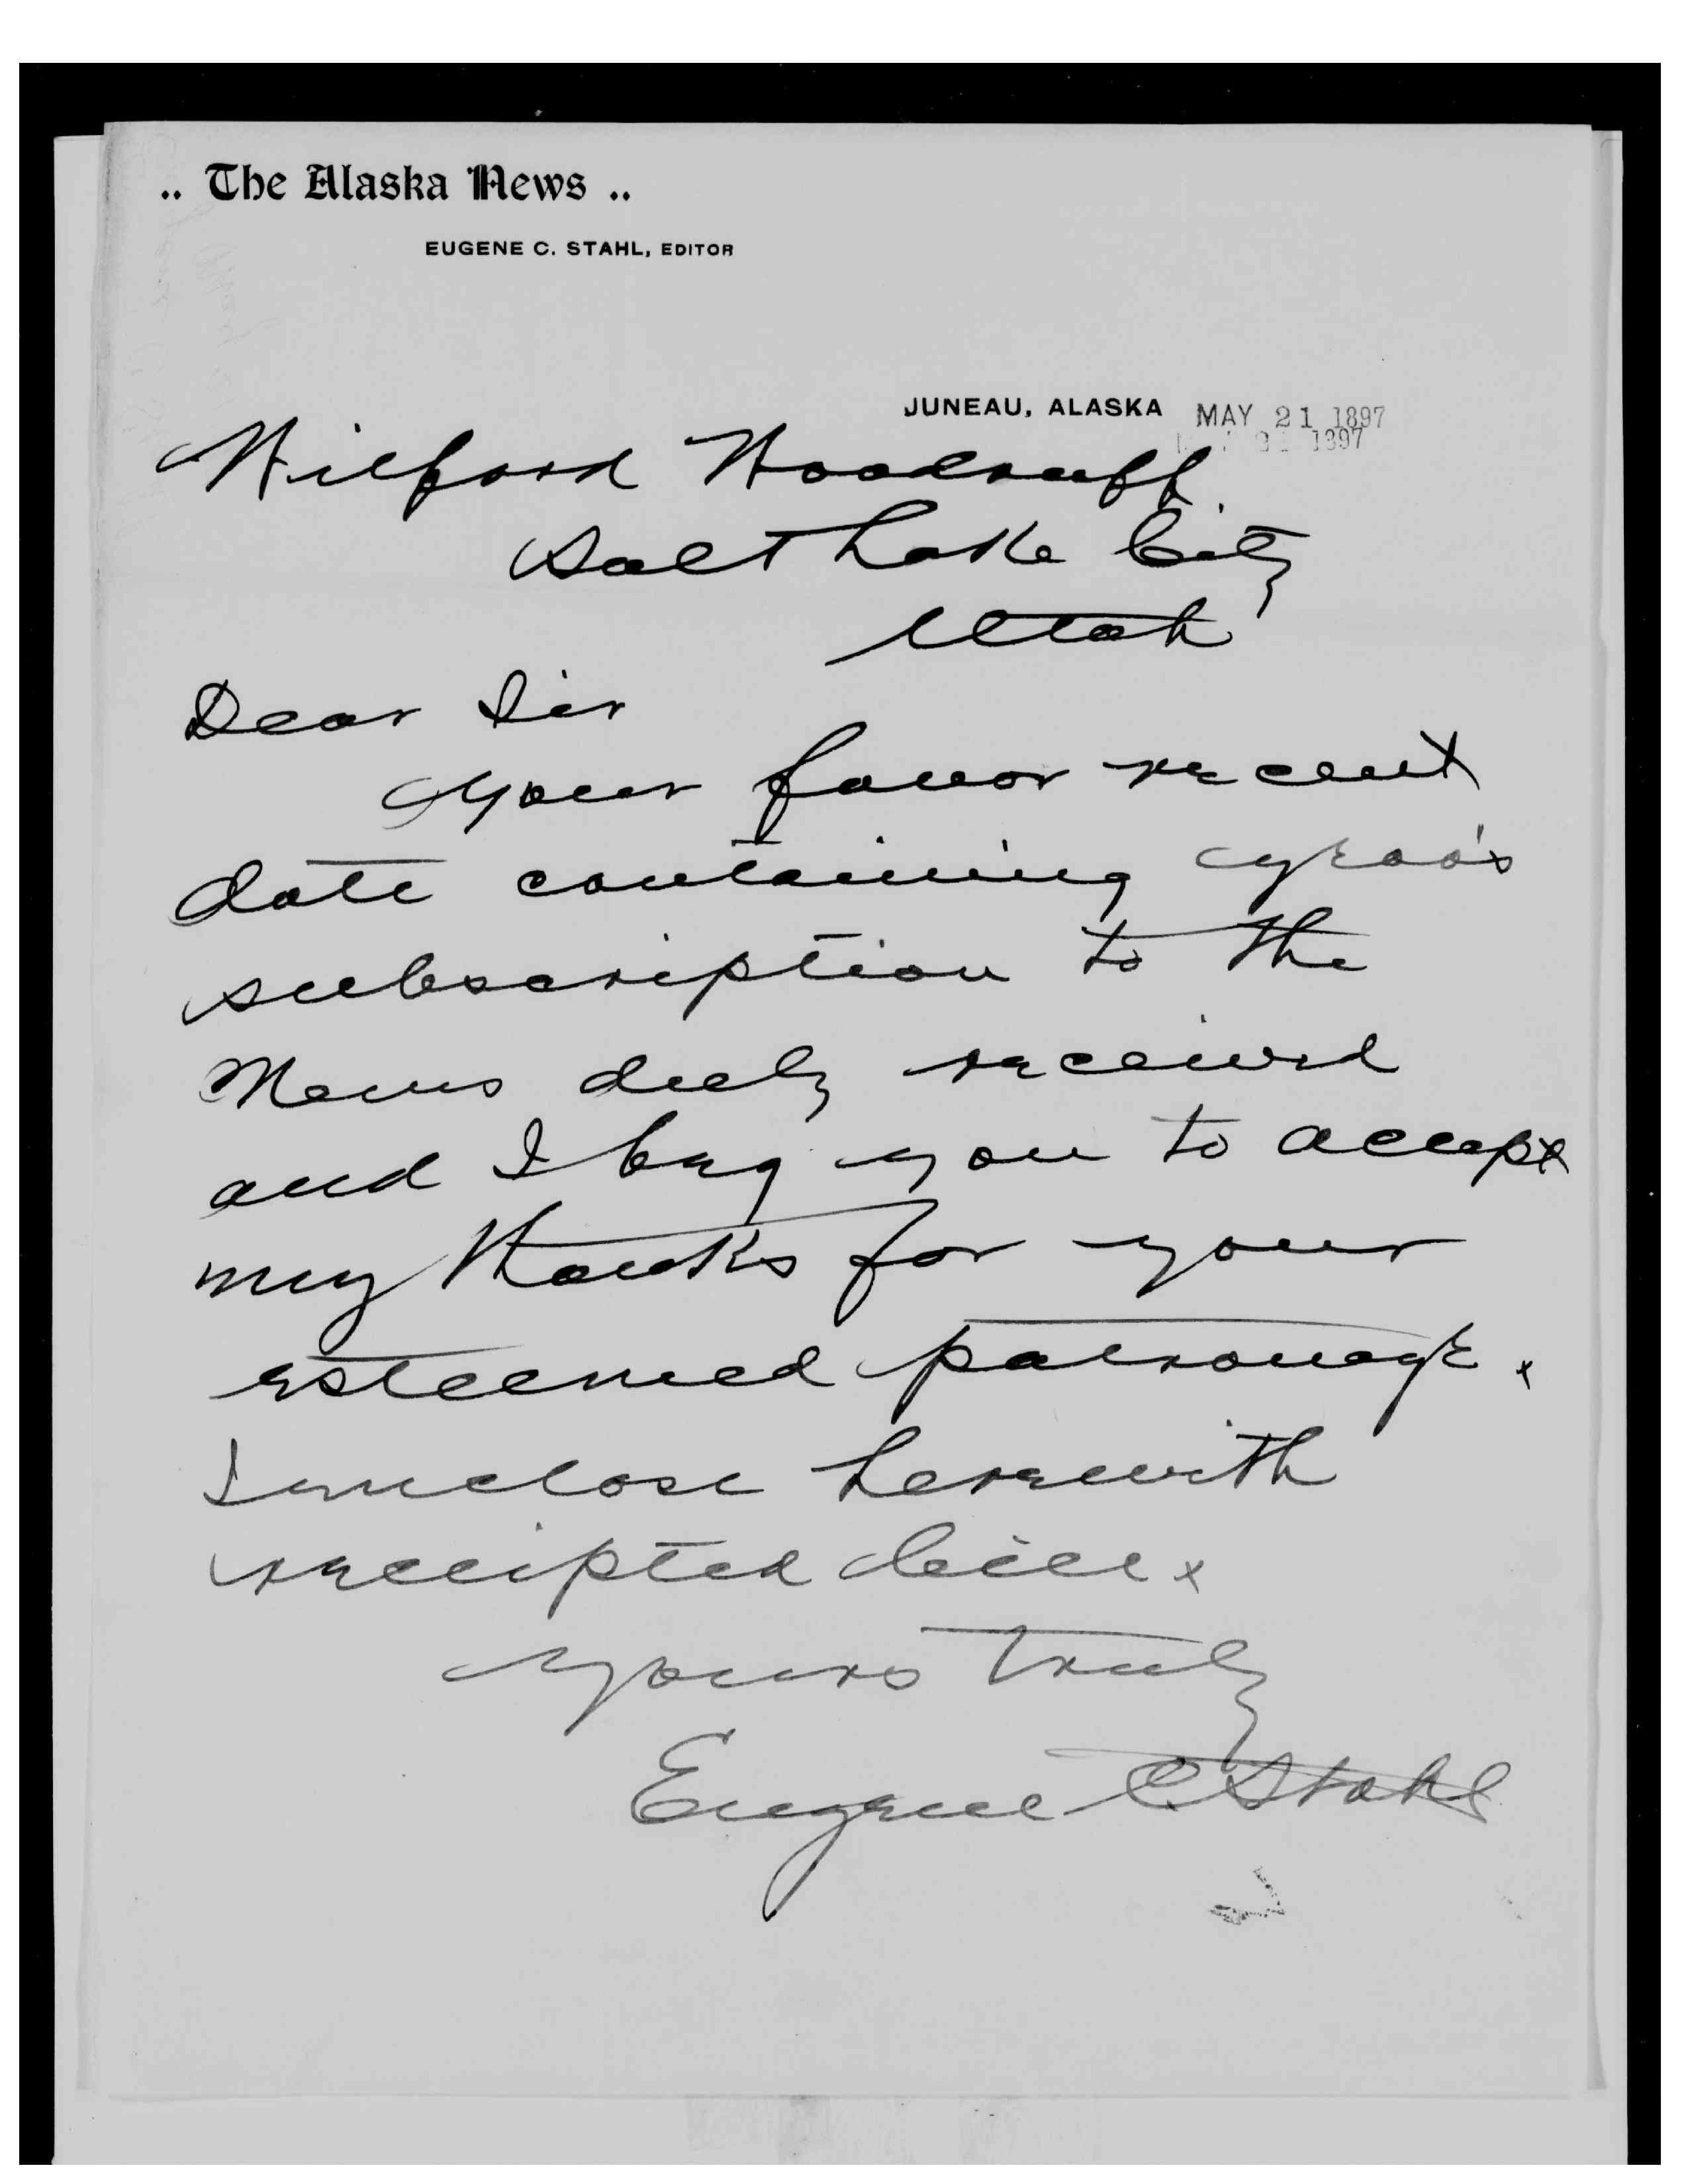 .. The Alaska News ..
EUGENE C. STAHL, EDITOR
JUNEAU, ALASKA MAY 21 1897
Wilford Woodruff
Salt Lake City
Utah
Dear Sir
Your favor recent
date containing year's
subscription to the
News duly received
and I beg you to accept
my thanks for your
esteemed patronage.
I enclose herewith
receipted bill.
Yours Truly
Eugene C Stahl